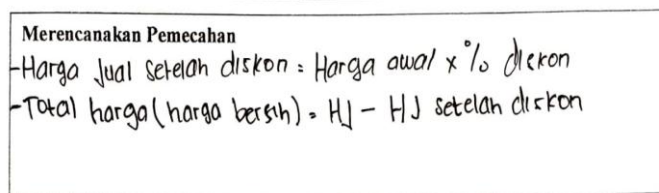 Merencanakan Pemecahan
-Harga Jual setelah diskon = Harga awal x % diskon
-Total harga (harga bersih) = HJ - HJ setelah diskon